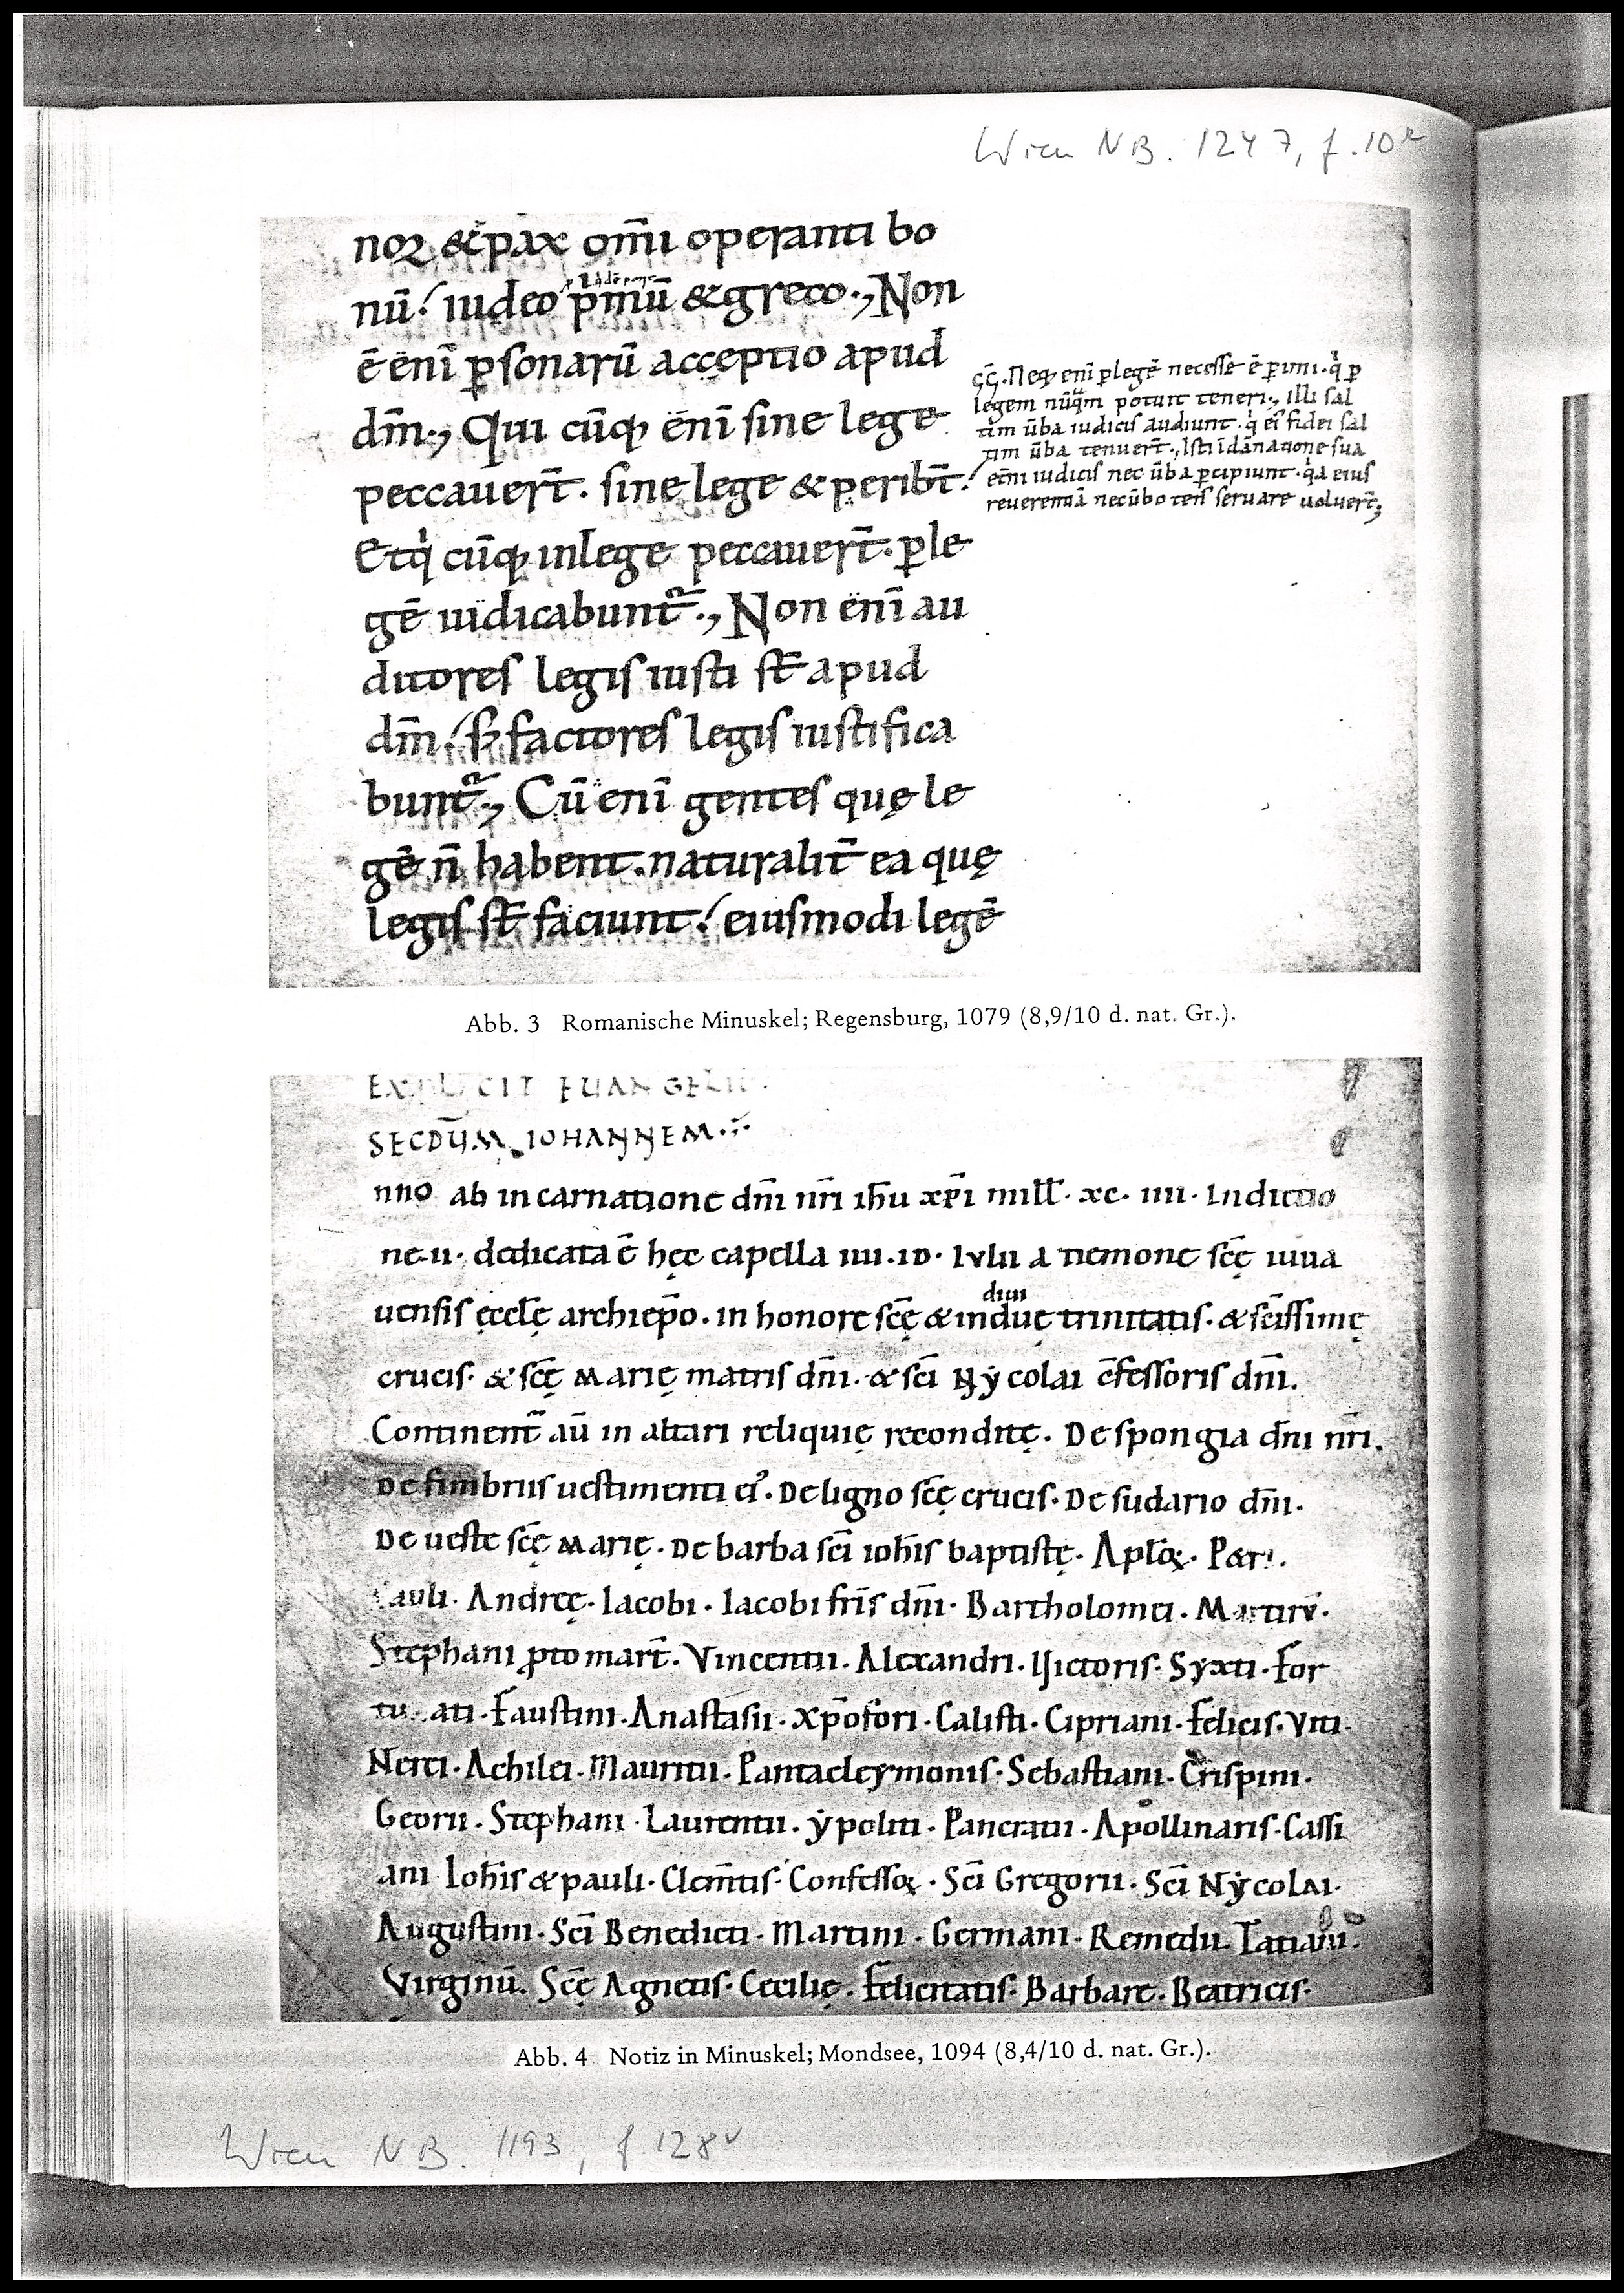 Wien NB. 1247, f. 10r
noꝝ & pax om̄i operanti bo
nū! iudeo p̄mū & greco., Non
ē enī ꝑsonarū acceptio apud
dm̄., Qui cūq; enī sine lege
peccauer̄t. sine lege & peribt̄!
Etq̇ cūq; inlege peccauer̄t. ꝑ le
gē iudicabunt᷑., Non enī au
ditores legis iusti st̄ apud
dm̄! sꝫ factores legis iustifica
bunt᷑., Cū enī gentes quę le
gē n̄ habent. naturalit̄ ea quę
legis st̄ faciunt! eiusmodi legē
Neq; enī ꝑ legē necesse ē ꝑimi. q̇ ꝑ
legem nūq̄m potuit teneri., Illi sal
tim ūba iudicis audiunt. q̇ ei᷒ fidei sal
tim ūba tenuer̄t., Isti ī dānatione sua
et̄ni iudicis nec ūba ꝑcipiunt. q̇a eius
reuerentiā nec ūbo ten᷒ seruare uoluer̄t;
Abb. 3 Romanische Minuskel; Regensburg, 1079 (8,9/10 d. nat. Gr.).
EXPLICIT EUANGELIU
SECDŪM IOHANNEM
nno ab incarnatione dn̄i nr̄i ih̄u xp̄i mill̄. xc. iiii. Indictio
ne. ii. dedicata ē hęc capella iiii. ID. Iulii a tiemone scę̄ iuua
uensis ęccl̄ę archiep̄o. in honore scę̄ & indiuiduę trinitatis. & sc̄issimę
crucis. & scę̄ Marię matris dn̄i. & sc̄i Nẏcolai c̄fessoris dn̄i.
Continent᷑ aū in altari reliquię reconditę. De spongia dn̄i nr̄i.
De fimbriis uestimenti ei᷒. De ligno scę̄ crucis. De sudario dn̄i.
De ueste scę̄ Marię. De barba sc̄i ioh̄is baptistę. Apl̄oꝝ. Petri.
Pauli. Andreę. Iacobi. Iacobi fr̄is dn̄i. Bartholomei. Martirū.
Stephani ꝓtomart̄. Vincentii. Alexandri. Uictoris. Syxti. For
tu ati. Faustini. Anastasii. Xp̄ofori. Calisti. Cipriani. Felicis. Viti.
Nerei. Achilei. Mauritii. Pantaleymonis. Sebastiani. Crispini.
Georii. Stephani. Laurentii. ẏpoliti. Pancratii. Apollinaris. Cassi
ani. Ioh̄is & pauli. Clem̄tis. Confessoꝝ. Sc̄i Gregorii. Sc̄i Nẏcolai.
Augustini. Sc̄i Benedicti. Martini. Germani. Remedii. Tatiani.
Virginū. Scę̄ Agnetis. Cecilię. Felicitatis. Barbare. Beatricis.
Abb. 4 Notiz in Minuskel; Mondsee, 1094 (8,4/10 d. nat. Gr.).
Wien NB. 1193, f. 128v